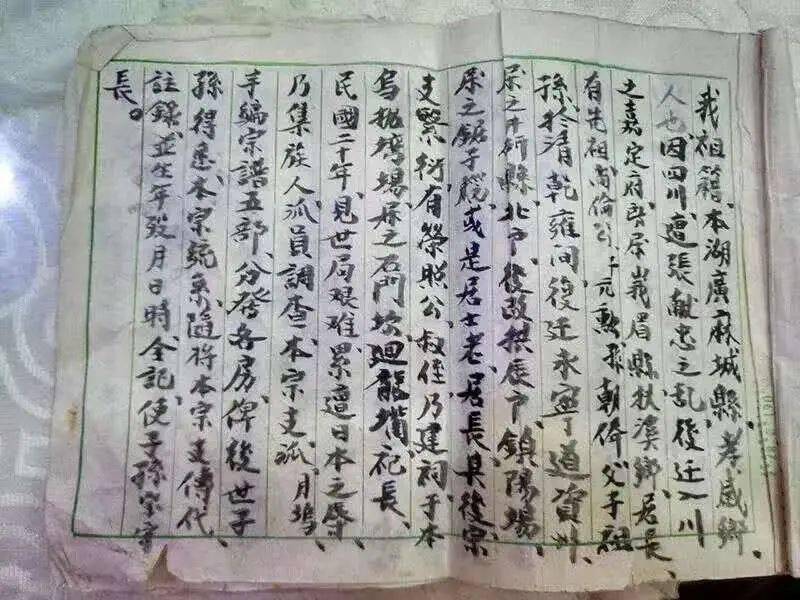 我祖籍、本湖廣麻城縣、孝感鄉、
人也、因四川、遭張献忠之乱、後迁入川
之嘉定府所屬峩眉縣扶溪鄉、居長、
有先祖、尚倫公、子元勲孫朝俸父子祖
孫、於清乾雍间後迁永寧道資州、
属之井研縣、北门後改拱辰门鎮陽場、
属之鋸子腦、或是居士老居長、其後宗
支繁衍、有榮照公、叔侄乃建祠于本
乌抛塆場屬之石門坎廻龍嘴祀長、
民國二十年、見世局艰难、累遭日本之辱、
乃集族人派員調查、本宗支派、月塢
手編宗譜五部、分發各房、俾後世子
孫得悉、本宗統系、隨將本宗支傳代、
註錄、並生年歿月日時、全記、使子孫宗守
長。